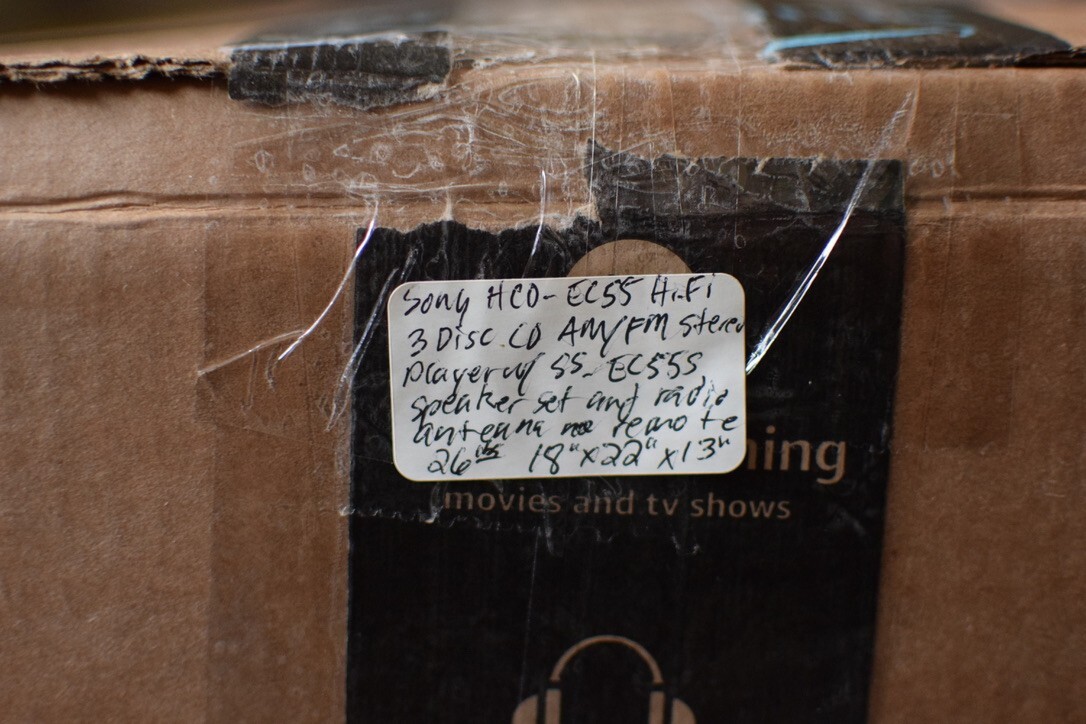 Sony HCD-EC55 Hi-Fi
3 Disc CD AM/FM Stereo
Player w/ SS-EC55S
speaker set and radio
antenna no remote
26 lbs 18"x22"x13"
ing
movies and tv shows